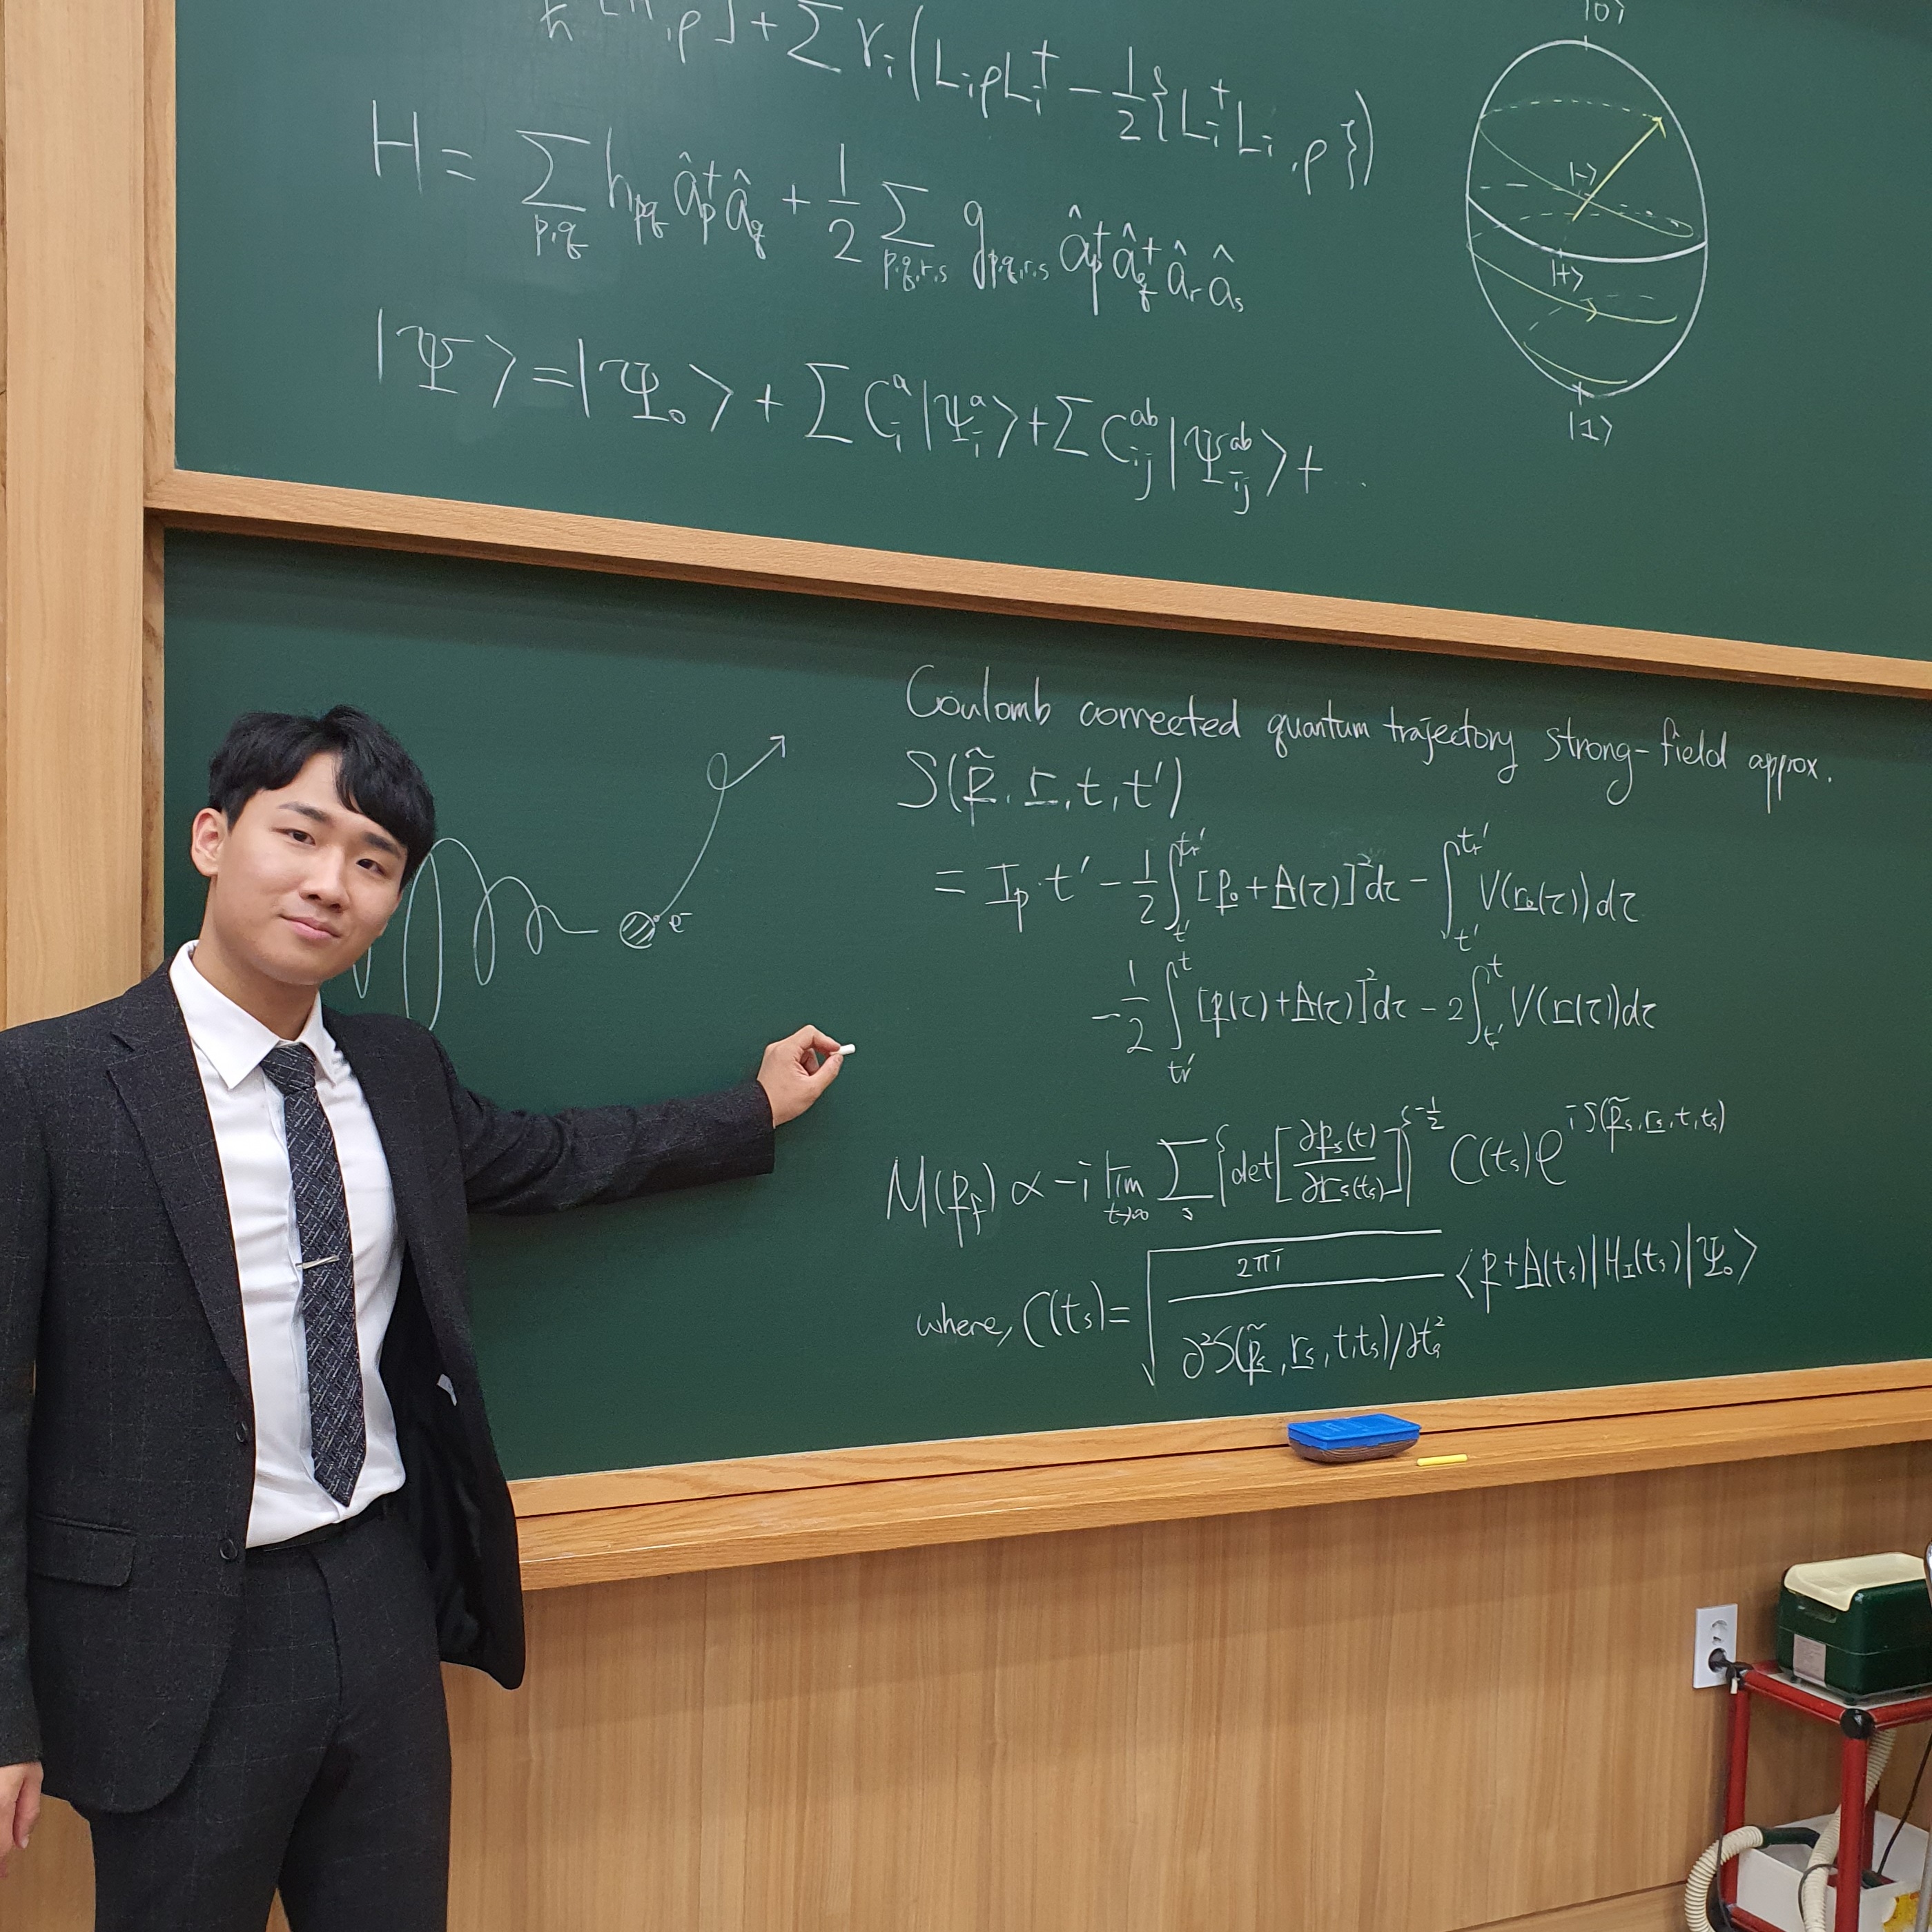 ħ [H,ρ] + Σ γᵢ(LᵢρLᵢ† − 1/2{Lᵢ†Lᵢ,ρ})
|0⟩
H = Σ_{p,q} h_{pq} â†_p â_q + 1/2 Σ_{p,q,r,s} g_{p,q,r,s} â†_p â†_q â_r â_s
|−⟩
|+⟩
|Ψ⟩ = |Ψ₀⟩ + Σ C_i^a |Ψ_i^a⟩ + Σ C_{ij}^{ab} |Ψ_{ij}^{ab}⟩ + ...
|1⟩
Coulomb corrected quantum trajectory strong-field approx.
S(p̃, r, t, t′)
e⁻
= I_p·t′ − 1/2 ∫_{t′}^{t_r′} [p₀ + A(τ)]² dτ − ∫_{t′}^{t_r′} V(r₀(τ)) dτ
− 1/2 ∫_{t_r′}^{t} [p(τ) + A(τ)]² dτ − 2 ∫_{t_r′}^{t} V(r(τ)) dτ
M(p_f) ∝ −i lim_{t→∞} Σ_s {det[∂p_s(t)/∂r_s(t_s)]}^{−1/2} C(t_s) e^{iS(p̃_s, r_s, t, t_s)}
where, C(t_s) = √(2πi / ∂²S(p̃_s, r_s, t, t_s)/∂t_s²) ⟨p + A(t_s)|H_I(t_s)|Ψ₀⟩